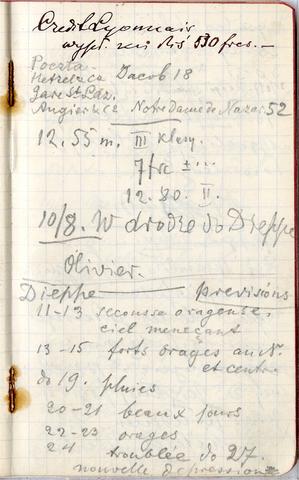 Credit Lyonnais
wypł. mi Ris 530 frcs. —
Poczta
Jacob 18
Gare St Laz.
Notre Dame de Nazar. 52
12.55 m. III klasy.
7 frc ±...
12.80. II.
10/8. W drodze do Dieppe
Olivier.
Dieppe previsions
11-13 secousse orageuse,
ciel meneçant
13-15 forts orages au N.
et centre
do 19. pluies
20-21 beaux jours
22-23 orages
24 troublée do 27.
nouvelle depression